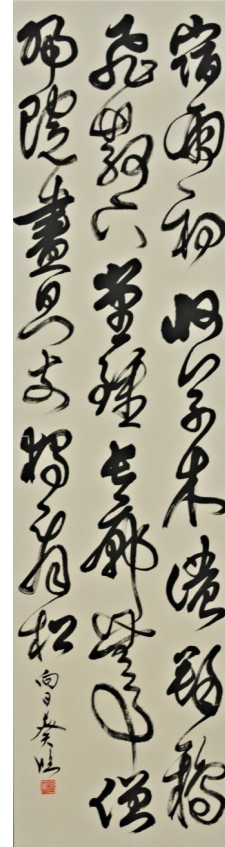 宿雨初收草木濃群鴉
飛散下堂鐘長廊無事僧
歸院盡日門前獨看松
向日葵